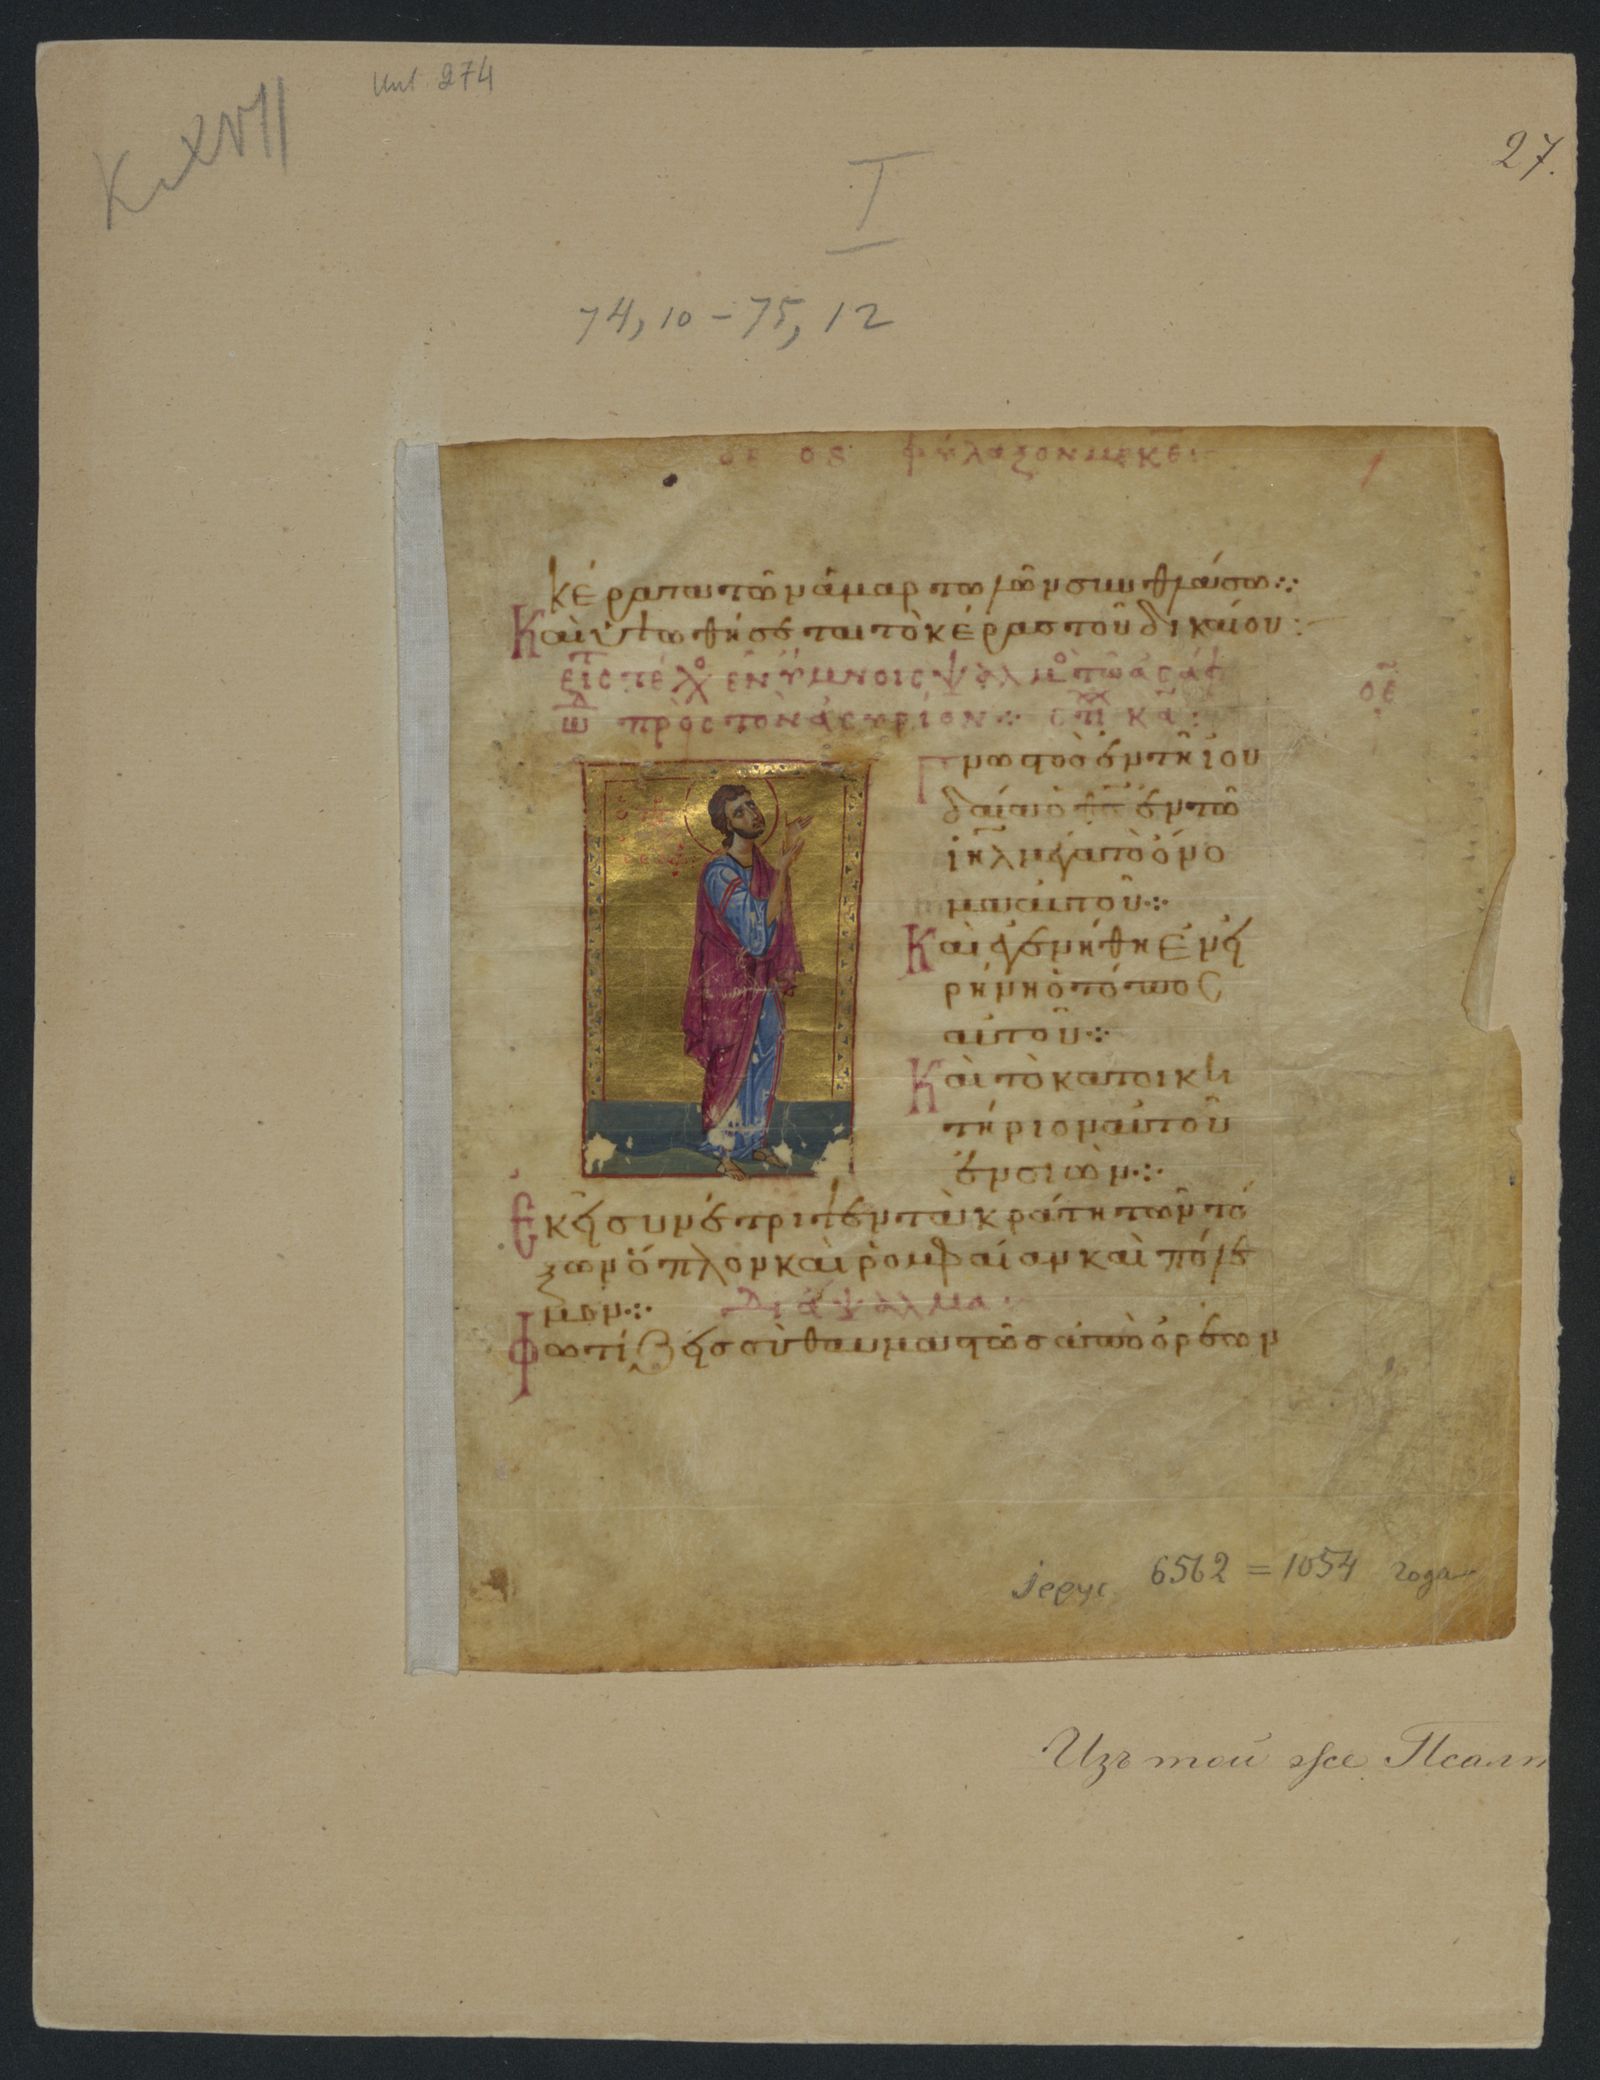 274
27.
I
74, 10 – 75, 12
φύλαξόν με κε
κέρατα τῶν ἁμαρτωλῶν συνθλάσω⁘
Καὶ ὑψωθήσεται τὸ κέρας τοῦ δικαίου:
εἰς τὸ τέλος ἐν ὕμνοις ψαλμὸς τῶ ἀσάφ
οε
ωδ πρὸς τὸν ἀσύριον⁘
Γνωστὸς ἐν τῆ ἰου
δαία ὁ θς ἐν τῶ
ιηλ μέγα τὸ ὄνο
μα αὐτοῦ⁘
Καὶ ἐγενήθη ἐν εἰ
ρήνη ὁ τόπος
αὐτοῦ⁘
Καὶ τὸ κατοικη
τήριον αὐτοῦ
ἐν σιὼν⁘
Ἐκεῖ συνέτριψεν τὰ κράτη τῶν τό
ξων ὅπλον καὶ ῥομφαίαν καὶ πόλε
μον⁘ Διάψαλμα
Φωτίζεις σὺ θαυμαστῶς ἀπὸ ὀρέων
іерус. 6562 = 1054 года
Изъ той же Псалт